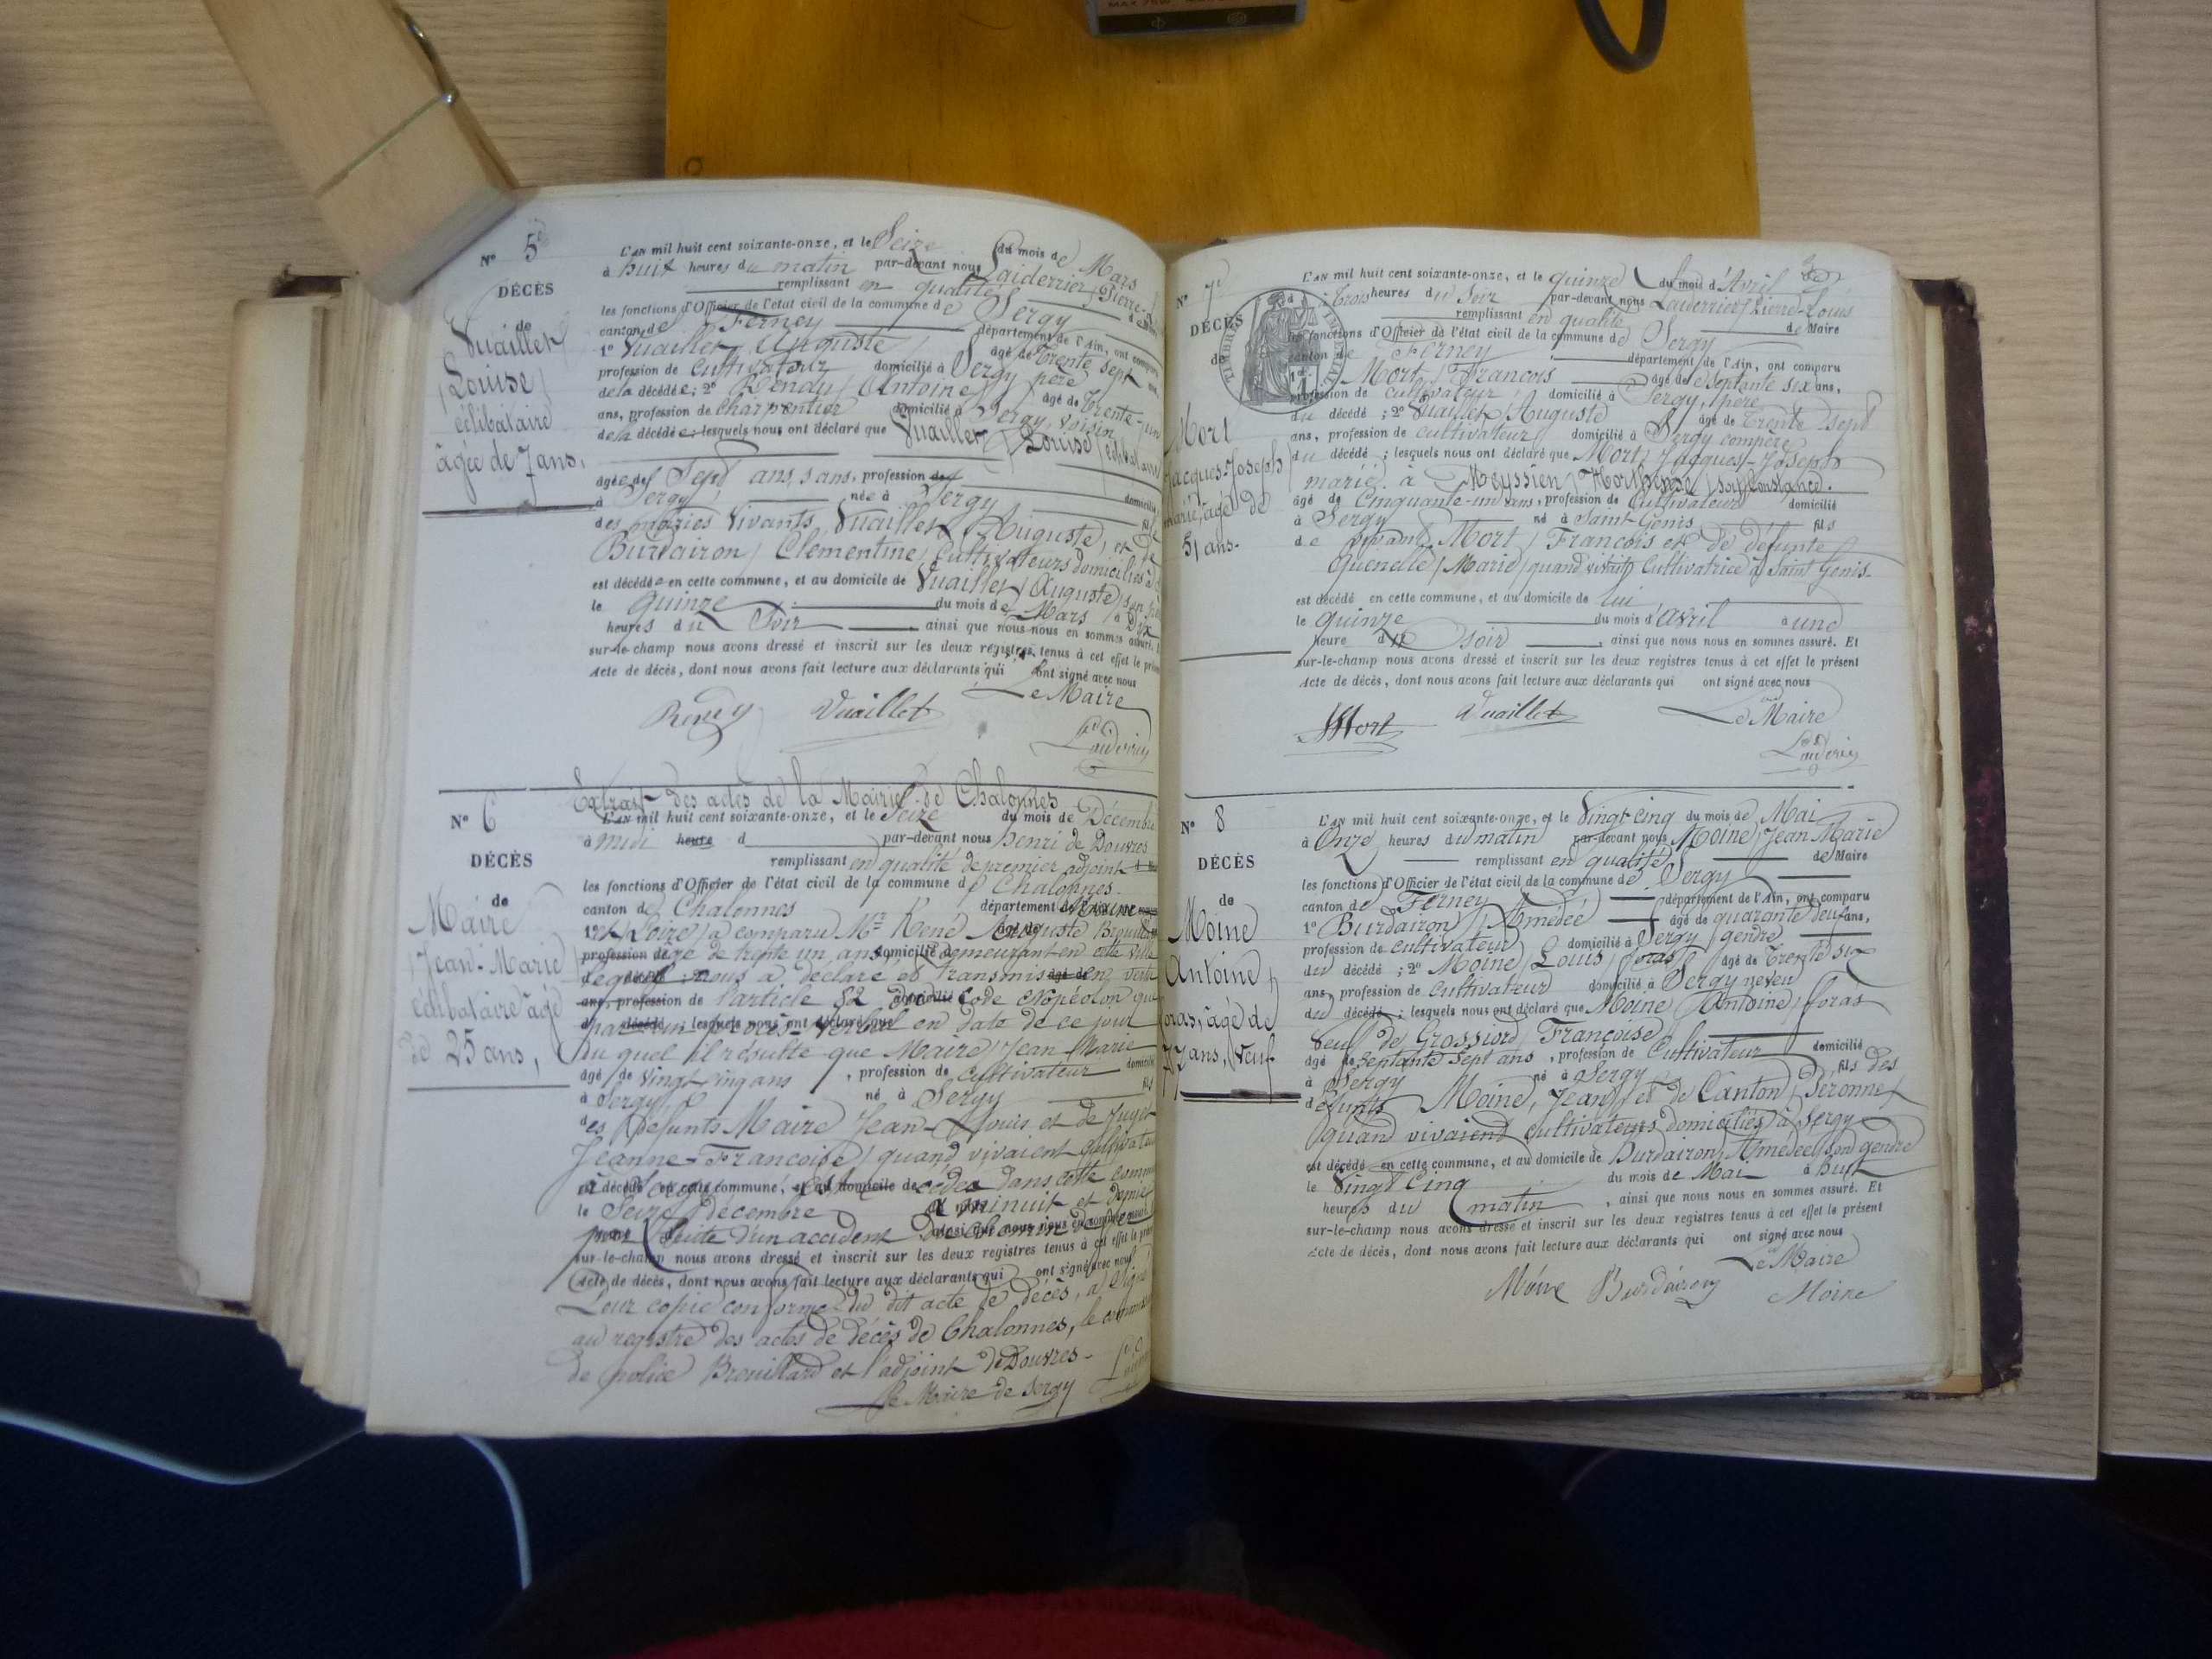 N° 5
DÉCÈS
de
Vuaillet
Louise
célibataire
âgée de 7 ans.
L'AN mil huit cent soixante-onze, et le Seize du mois de Mars
à huit heures du matin par-devant nous Laiderrier Pierre
remplissant en qualité de
les fonctions d'Officier de l'état civil de la commune de Sergy
canton de Ferney département de l'Ain, ont comparu
1° Vuaillet Auguste âgé de trente sept ans,
profession de cultivateur domicilié à Sergy père
de la décédée; 2° Rendu Antoine âgé de trente-un
ans, profession de charpentier domicilié à Sergy, voisin
de la décédée; lesquels nous ont déclaré que Vuaillet Louise célibataire
âgée de Sept ans, sans profession domicilié
à Sergy née à Sergy fil
des mariés vivants Vuaillet Auguste, et de
Burdairon Clémentine Cultivateurs domiciliés à
est décédée en cette commune, et au domicile de Vuaillet Auguste son père
le quinze du mois de Mars à Dix
heures du Soir ainsi que nous nous en sommes assuré. Et
sur-le-champ nous avons dressé et inscrit sur les deux registres tenus à cet effet le présent
Acte de décès, dont nous avons fait lecture aux déclarants qui ont signé avec nous
Le Maire
Vuaillet
N° 6
DÉCÈS
de
Maire
Jean-Marie
célibataire âgé
de 25 ans,
Extrait des actes de la Mairie de Chalonnes
L'AN mil huit cent soixante-onze, et le Seize du mois de Décembre
à midi heure d par-devant nous henri de Douvres
remplissant en qualité de premier adjoint
les fonctions d'Officier de l'état civil de la commune d Chalonnes.
canton de Chalonnes département de
Loire a comparu Mr René Auguste Brouillard
profession de âgé de trente un ans domicilié demeurant en cette ville
lequel nous a déclaré et transmis en vertu
ans, profession de l'article 82 du Code Napoléon que
par un procès-verbal en date de ce jour
du quel il résulte que Maire Jean Marie
âgé de vingt cinq ans, profession de cultivateur domicilié
à Sergy né à Sergy fils
des défunts Maire Jean-Louis et de
Jeanne-Francoise quand vivaient cultivateurs
à Sergy est décédé dans cette commune
le Seize décembre à minuit et demie
par suite d'un accident de chemin de fer
sur-le-champ nous avons dressé et inscrit sur les deux registres tenus à cet effet le présent
Acte de décès, dont nous avons fait lecture aux déclarants qui ont signé avec nous
Pour copie conforme du dit acte de décès, a signé
au registre des actes de décès de Chalonnes, le commissaire
de police Brouillard et l'adjoint de Douvres.
Le Maire de Sergy
N° 7
DÉCÈS
de
TIMBRE IMPÉRIAL
Mort
Jacques-Joseph
marié, âgé de
51 ans.
L'AN mil huit cent soixante-onze, et le quinze du mois d'Avril
à Trois heures du Soir par-devant nous Laiderrier Pierre-Louis
remplissant en qualité de Maire
les fonctions d'Officier de l'état civil de la commune de Sergy
canton de Ferney département de l'Ain, ont comparu
Mort François âgé de septante six ans,
profession de cultivateur domicilié à Sergy, père
du décédé; 2° Vuaillet Auguste âgé de trente sept
ans, profession de cultivateur domicilié à Sergy compère
du décédé; lesquels nous ont déclaré que Mort Jacques-Joseph
marié à Meyssien Horthense Constance.
âgé de Cinquante-un ans, profession de Cultivateur domicilié
à Sergy né à Saint-Genis fils
de vivant Mort François et de défunte
Quenelle Marie quand vivait Cultivatrice à Saint Genis.
est décédé en cette commune, et au domicile de lui
le quinze du mois d'avril à une
heure du soir, ainsi que nous nous en sommes assuré. Et
sur-le-champ nous avons dressé et inscrit sur les deux registres tenus à cet effet le présent
Acte de décès, dont nous avons fait lecture aux déclarants qui ont signé avec nous
Le Maire
Mort Vuaillet
N° 8
DÉCÈS
de
Moine
Antoine
foras, âgé de
77 ans, Veuf
L'AN mil huit cent soixante-onze, et le Vingt-cinq du mois de Mai
à Onze heures du matin par-devant nous Moine Jean Marie
remplissant en qualité de Maire
les fonctions d'Officier de l'état civil de la commune de Sergy
canton de Ferney département de l'Ain, ont comparu
1° Burdairon Amédée âgé de quarante neuf ans,
profession de cultivateur domicilié à Sergy gendre
du décédé; 2° Moine Louis foras âgé de Trente six
ans, profession de Cultivateur domicilié à Sergy neveu
du décédé; lesquels nous ont déclaré que Moine Antoine foras
veuf de Grossiord Françoise
âgé de Septante Sept ans, profession de Cultivateur domicilié
à Sergy né à Sergy fils des
défunts Moine, Jean et de Canton Péronne
quand vivaient Cultivateurs domiciliés à Sergy
est décédé en cette commune, et au domicile de Burdairon Amédée son gendre
le Vingt Cinq du mois de Mai à huit
heures du matin, ainsi que nous nous en sommes assuré. Et
sur-le-champ nous avons dressé et inscrit sur les deux registres tenus à cet effet le présent
Acte de décès, dont nous avons fait lecture aux déclarants qui ont signé avec nous
Le Maire
Moine Burdairon Moine